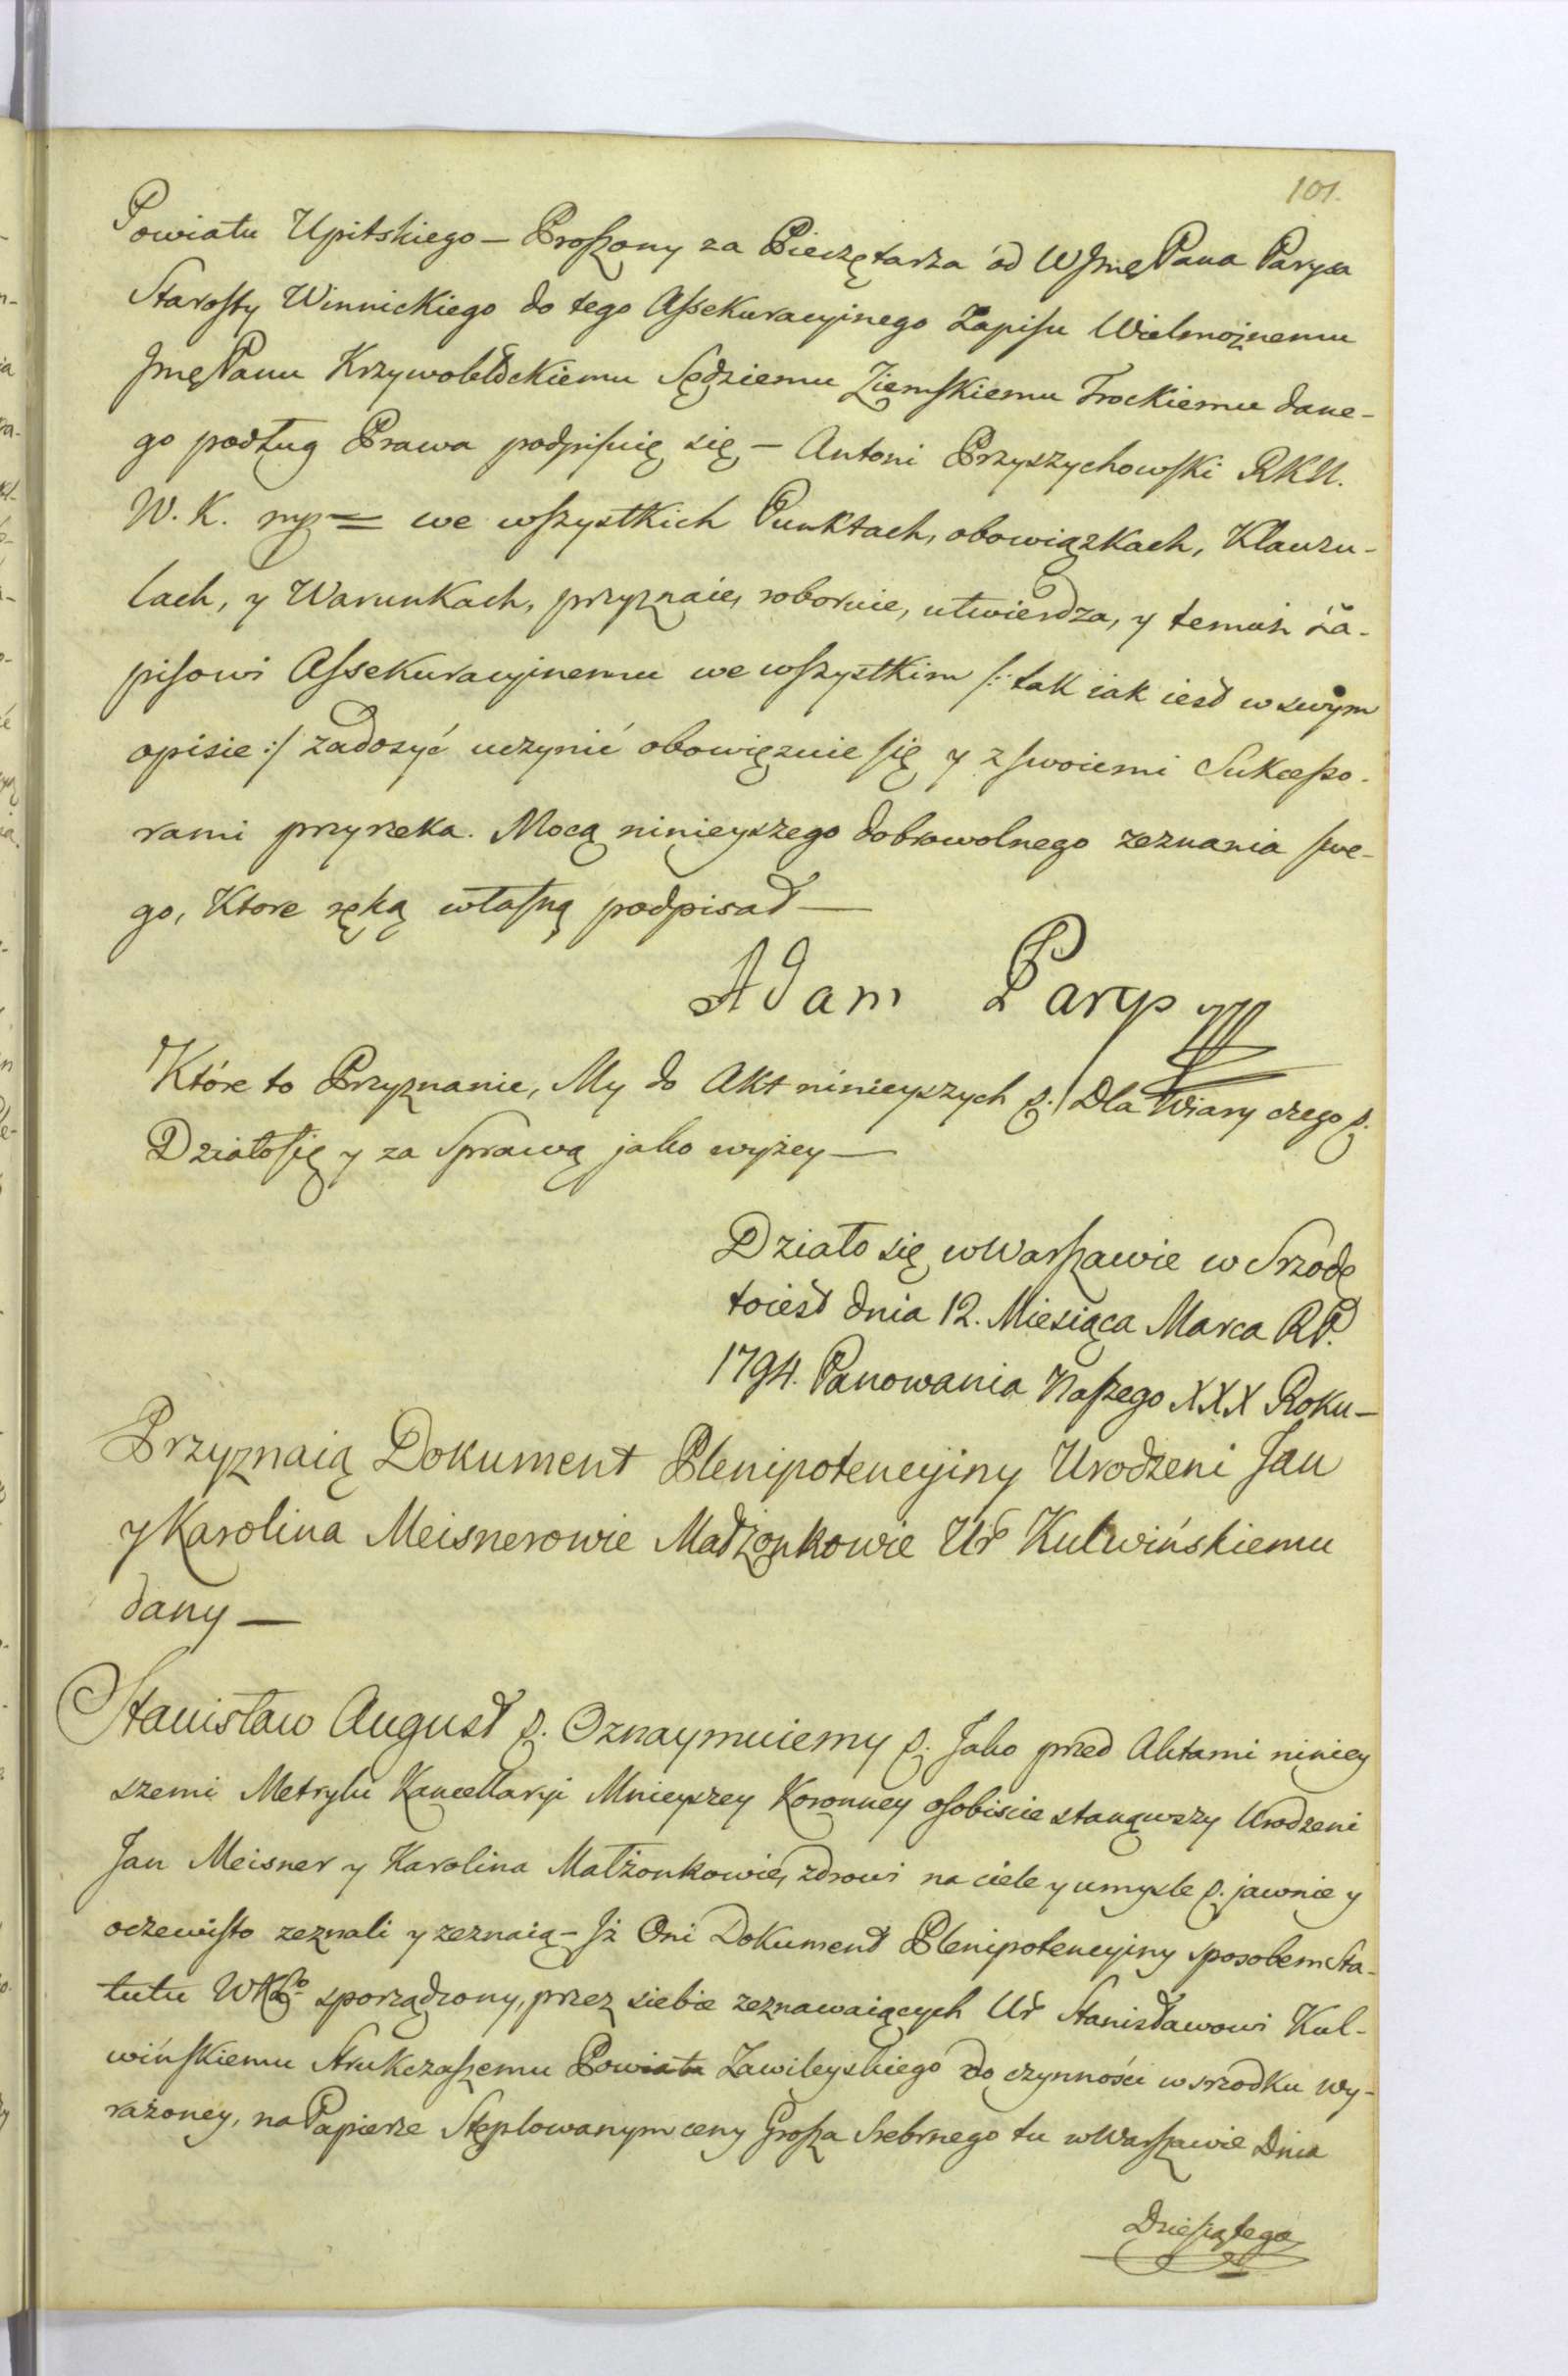 101.
Powiatu Upitskiego — Proszony za Pieczętarza od WJmę Pana Parysa
Starosty Winnickiego do tego Assekuracyjnego Zapisu Wielmożnemu
Jmę Panu Krzywobłockiemu Sędziemu Ziemskiemu Trockiemu dane-
go podług Prawa podpisuię się — Antoni Przyszychowski
W. K. mp = we wszystkich Punktach, obowiązkach, Klauzu-
lach, y Warunkach, przyznaie, roboruie, utwierdza, y temuż Za-
pisowi Assekuracyjnemu we wszystkim /: tak iak iest w swym
opisie :/ zadosyć uczynić obowięzuie się y z swoiemi Sukcesso-
rami przyrzeka. Mocą ninieyszego dobrowolnego zeznania swe-
go, Ktore ręką własną podpisał —
Adam Parys mp
Które to Przyznanie, My do Akt ninieyszych p. / Dla Wiary czego p.
Działo się y za Sprawą jako wyżey —
Działo się w Warszawie w Srzodę
toiest dnia 12. Miesiąca Marca RP.
1794. Panowania Naszego XXX Roku —
Przyznaią Dokument Plenipotencyiny Urodzeni Jan
y Karolina Meisnerowie Małżonkowie Ur Kulwińskiemu
dany —
Stanisław August p. Oznaymuiemy p. Jako przed Aktami niniey
szemi Metryki Kancellaryi Mnieyszey Koronney osobiscie stanąwszy Urodzeni
Jan Meisner y Karolina Małżonkowie, zdrowi na ciele y umysle p. jawnie y
oczewisto zeznali y zeznaią — Jż Oni Dokument Plenipotencyiny sposobem Sta-
tutu WXLgo sporządzony, przez siebie zeznawaiących Ur Stanisławowi Kul-
wińskiemu Strukczaszemu Powiatu Zawileyskiego do czynności w srzodku wy-
rażoney, na Papierze Stęplowanym ceny Grosza Srebrnego tu w Warszawie Dnia
Dziesiątego